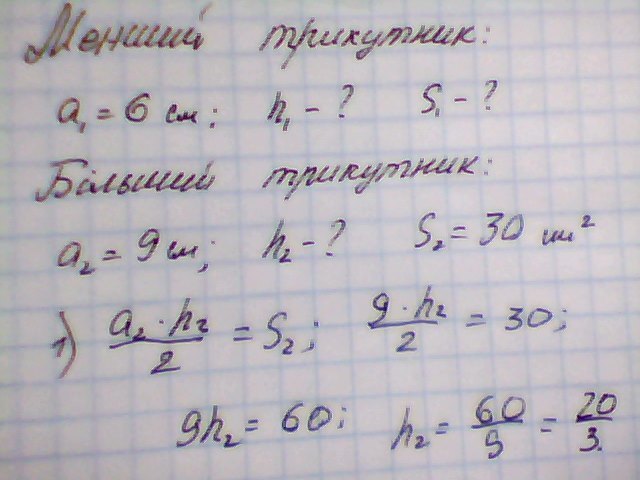 Менший трикутник:
a₁ = 6 см; h₁ - ? S₁ - ?
Більший трикутник:
a₂ = 9 см; h₂ - ? S₂ = 30 см²
1) a₂ · h₂ / 2 = S₂; 9 · h₂ / 2 = 30;
9h₂ = 60; h₂ = 60 / 9 = 20 / 3.